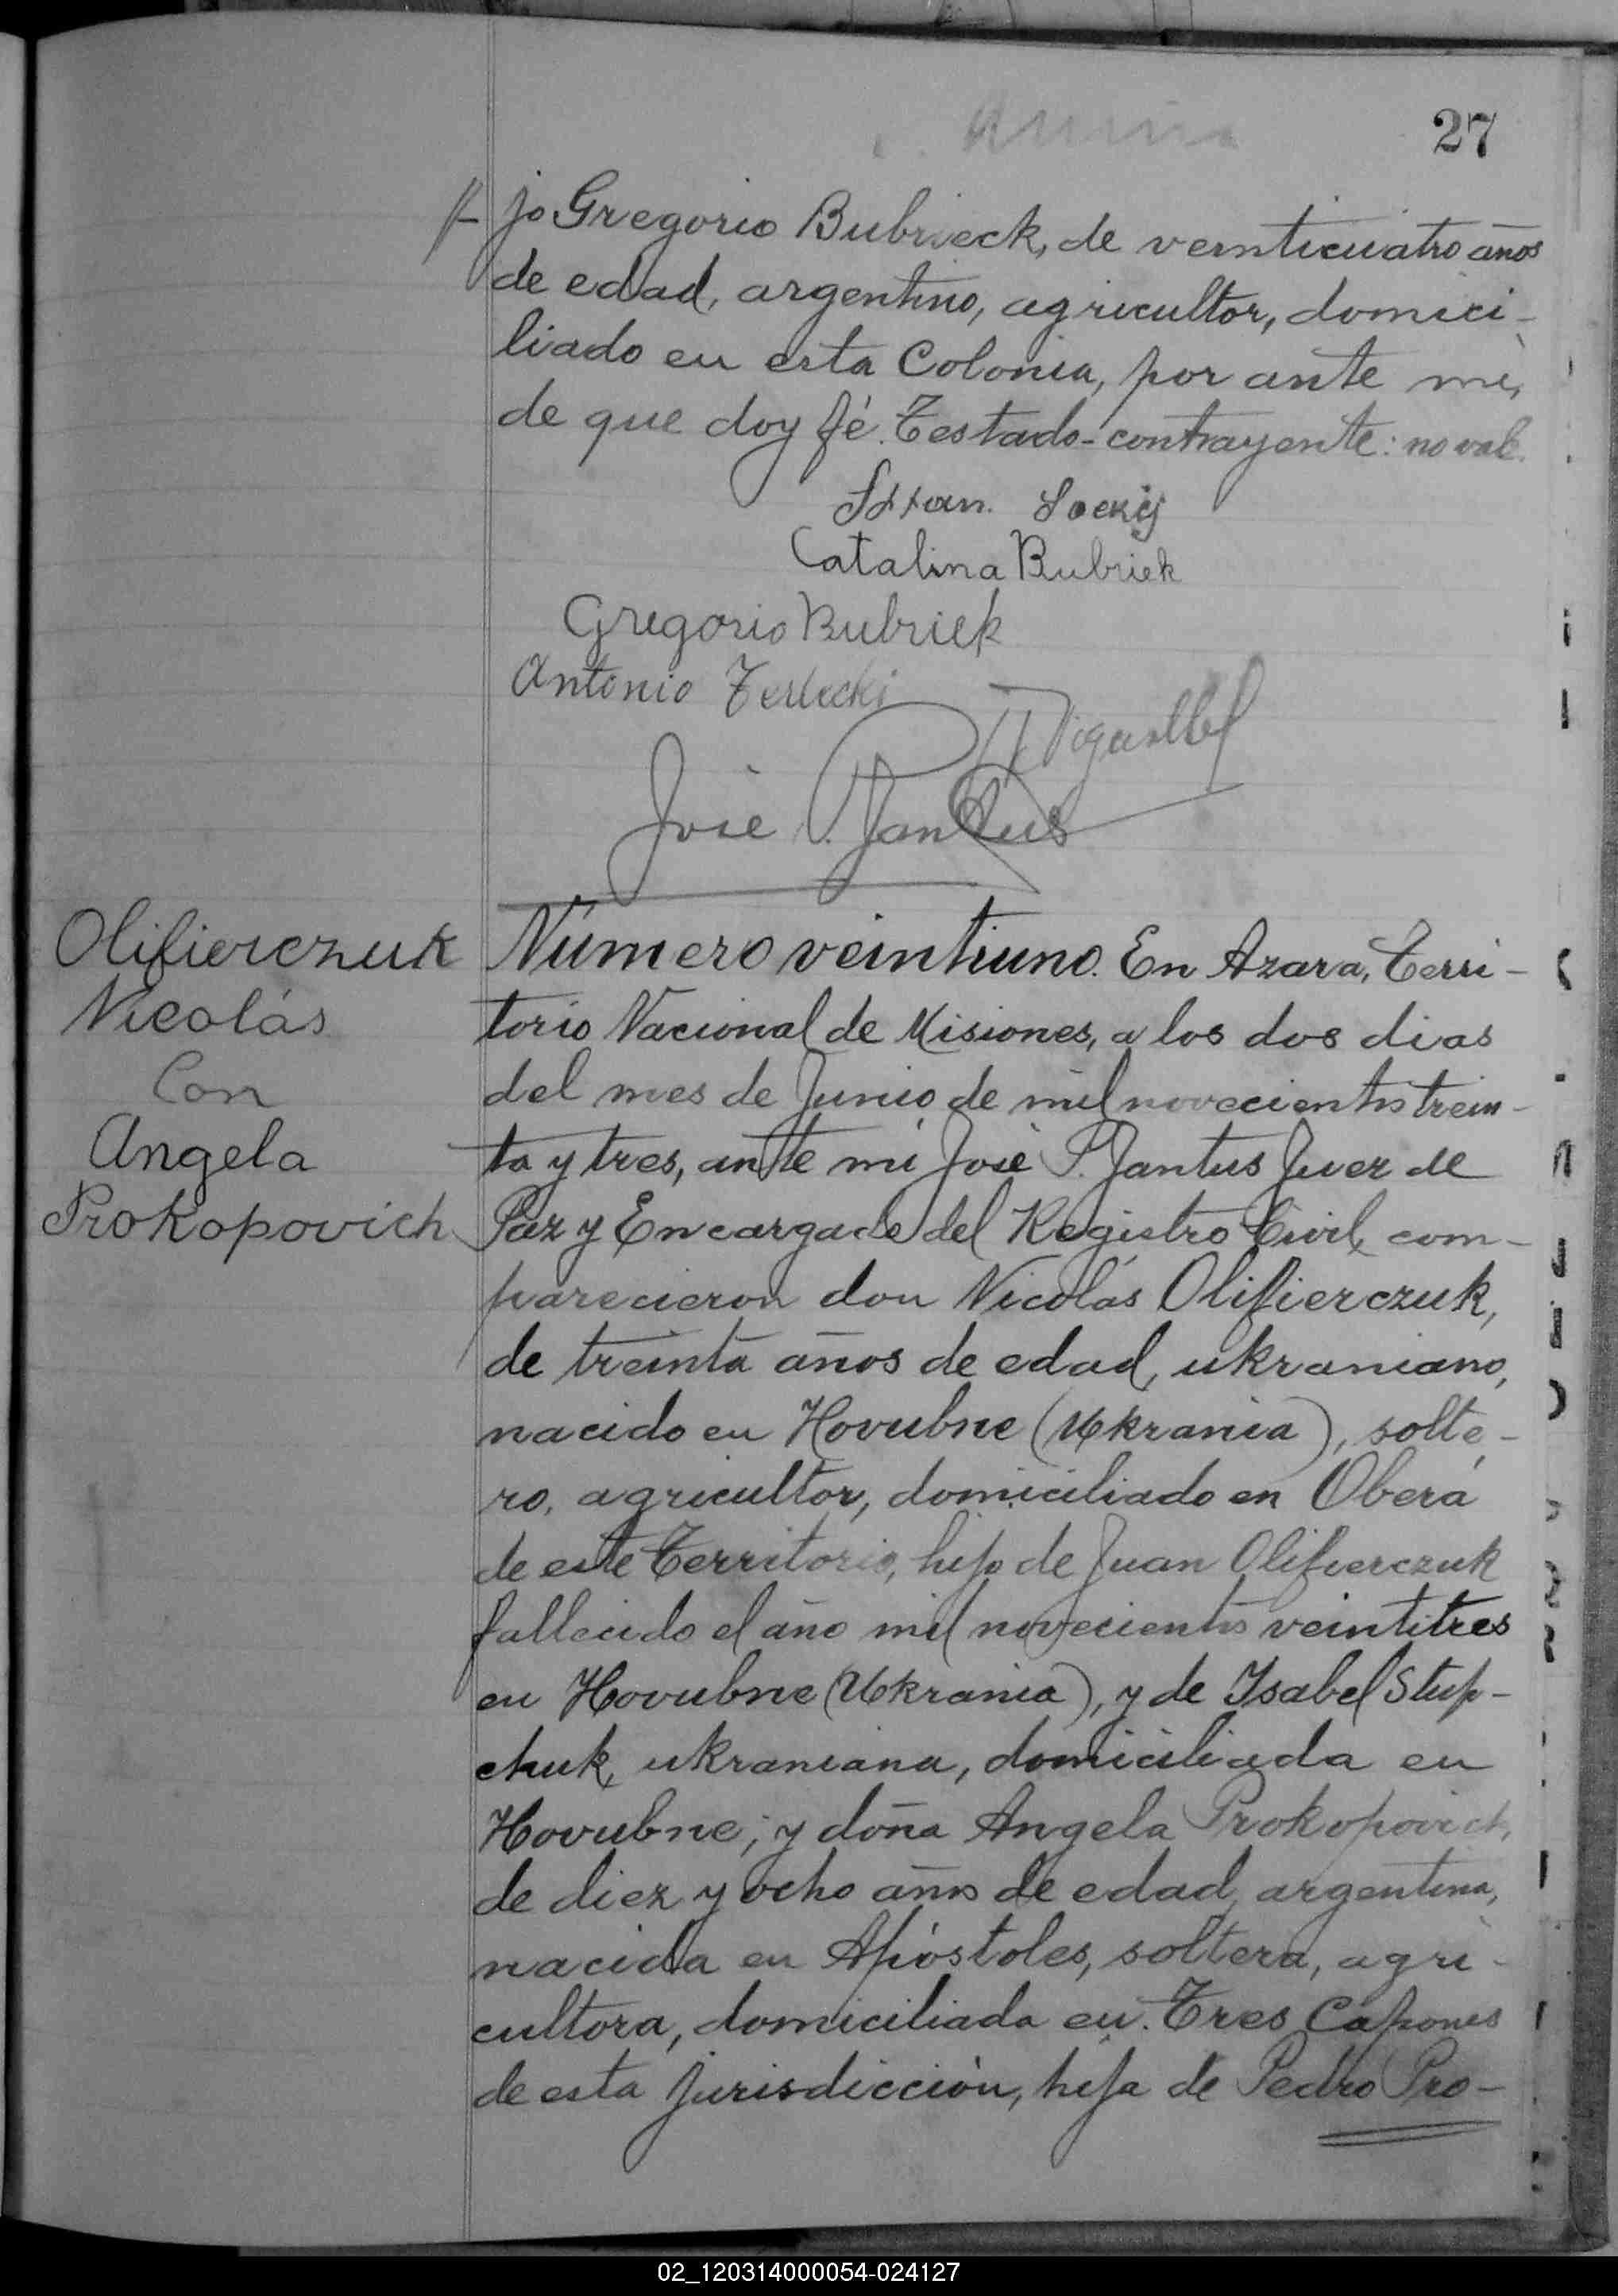 27
jo Gregorio Bubrieck, de veinticuatro años
de edad, argentino, agricultor, domici-
liado en esta Colonia, por ante mi,
de que doy fé. Testado-contrayente: no vale.
Catalina Bubriek
Gregorio Bubriek
Antonio Terlecki
José P. Jantus
Olifierczuk
Nicolás
Con
Angela
Prokopovich
Número veintiuno. En Azara, Terri-
torio Nacional de Misiones, a los dos dias
del mes de Junio de mil novecientos trein-
ta y tres, ante mi José P. Jantus Juez de
Paz y Encargado del Registro Civil, com-
parecieron don Nicolás Olifierczuk,
de treinta años de edad, ukraniano,
nacido en Hovubne (Ukrania), solte-
ro, agricultor, domiciliado en Oberá
de este Territorio, hijo de Juan Olifierczuk
fallecido el año mil novecientos veintitres
en Hovubne (Ukrania), y de Isabel Stup-
chuk, ukraniana, domiciliada en
Hovubne; y doña Angela Prokopovich,
de diez y ocho años de edad, argentina,
nacida en Apóstoles, soltera, agri-
cultora, domiciliada en Tres Capones
de esta Jurisdicción, hija de Pedro Pro-
02_120314000054-024127